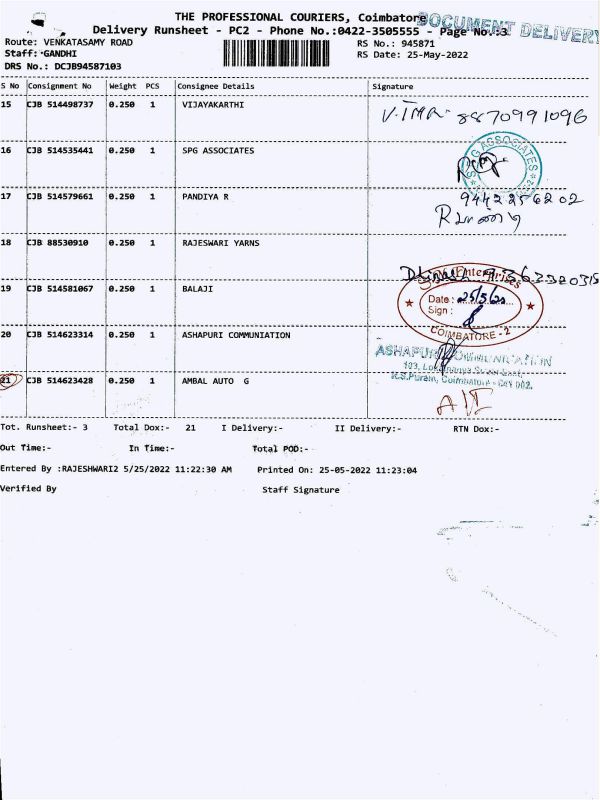 THE PROFESSIONAL COURIERS, Coimbatore
DOCUMENT DELIVERY
Delivery Runsheet - PC2 - Phone No.:0422-3505555 - Page No.:3
Route: VENKATASAMY ROAD RS No.: 945871
Staff: GANDHI RS Date: 25-May-2022
DRS No.: DCJB94587103
S No Consignment No Weight PCS Consignee Details Signature
15 CJB 514498737 0.250 1 VIJAYAKARTHI 8870991096
16 CJB 514535441 0.250 1 SPG ASSOCIATES
SPG ASSOCIATES
17 CJB 514579661 0.250 1 PANDIYA R 9442256202
18 CJB 88530910 0.250 1 RAJESWARI YARNS
Dhinesh
Enterprises
19 CJB 514581067 0.250 1 BALAJI
Date: 25/5/22
Sign:
COIMBATORE - 2
20 CJB 514623314 0.250 1 ASHAPURI COMMUNIATION
ASHAPURI COMMUNICATION
R.S.Puram, Coimbatore - 641 002.
21 CJB 514623428 0.250 1 AMBAL AUTO G
Tot. Runsheet:- 3 Total Dox:- 21 I Delivery:- II Delivery:- RTN Dox:-
Out Time:- In Time:- Total POD:-
Entered By :RAJESHWARI2 5/25/2022 11:22:30 AM Printed On: 25-05-2022 11:23:04
Verified By Staff Signature